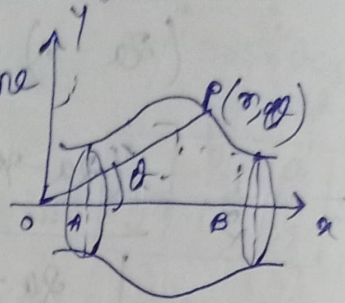 y
P(r, θ)
θ
O A B x